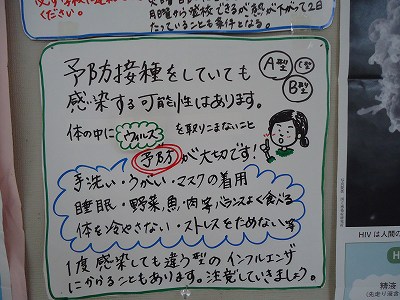 ください。
月曜から登校できるが熱が下がって2日
たっていることも条件となる。
予防接種をしていても
感染する可能性はあります。
A型
C型
B型
体の中にウィルスを取りこまないこと
予防が大切です!
手洗い・うがい・マスクの着用
睡眠・野菜,魚,肉等バランスよく食べる
体を冷やさない・ストレスをためない等
1度感染しても違う型のインフルエンザ
にかかることもあります。注意していきましょう。
HIVは人間の
精液